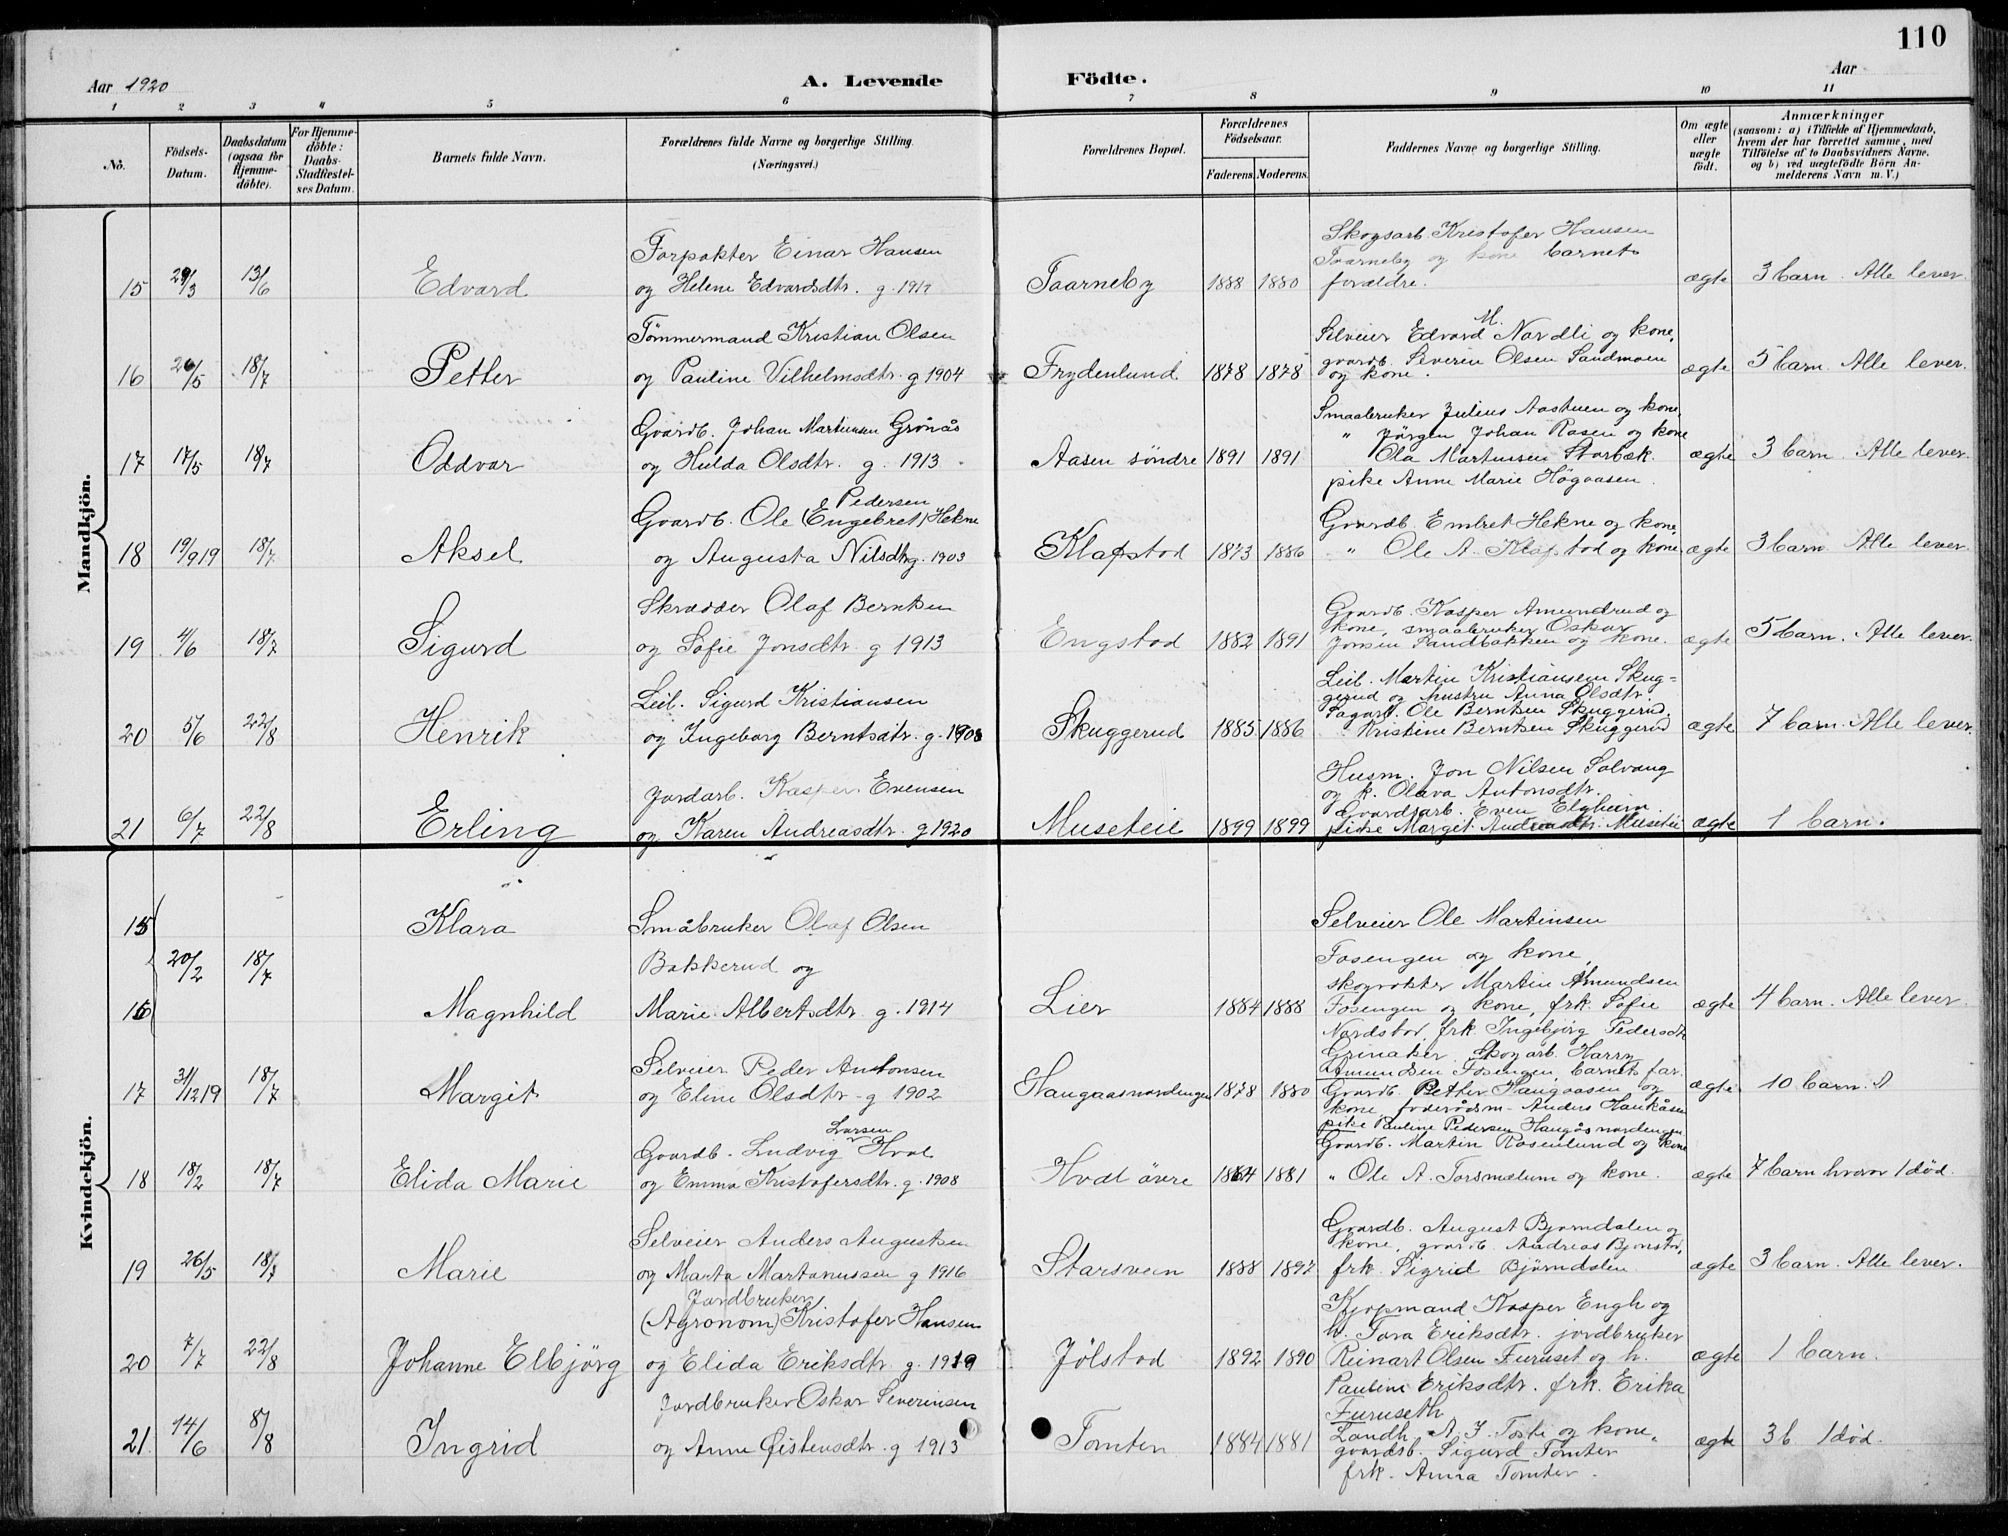 110
Aar 1920
A. Levende
Födte.
Aar
1 2 3 4 5 6 7 8 9 10 11
No.
Födsels-Datum.
Daabsdatum (ogsaa för Hjemme-döbte).
For Hjemme-döbte: Daabs-Stadfæstel-ses Datum.
Barnets fulde Navn.
Forældrenes fulde Navne og borgerlige Stilling.
(Næringsvei.)
Forældrenes Bopæl.
Forældrenes Födselsaar.
Faderens. Moderens.
Faddernes Navne og borgerlige Stilling.
Om ægte eller uægte födt.
Anmærkninger
(saasom: a) i Tilfælde af Hjemmedaab,
hvem der har forrettet samme, med
Tilföielse af to Daabsvidners Navne.
og b) ved uægtefödte Börn An-
melderens Navn m. V.)
Mandkjön.
Forpakter Einar Hansen
Skogsarb. Kristofer Hansen
Taarneby og kone barnets
15 29/3 13/6 Edvard og Helene Edvardsdtr. g. Taarneby 1888 1880 forældre. ægte 3 barn. Alle lever.
Tømmermand Kristian Olsen
Selveier Edvard M. Nordli og kone,
gaardb. Severin Olsen Sandmoen
16 20/5 18/7 Petter og Pauline Vilhelmsdtr. g 1904 Frydenlund 1878 1878 og kone. ægte 5 barn. Alle lever.
Gaardb. Johan Martinsen Grönås
Smaabruker Julius Aastuen og kone,
" Jörgen Johan Rosen og kone
17 17/5 18/7 Oddvar og Hulda Olsdtr. g. 1913. Aasen söndre 1891 1891 Ola Martinsen Storbæk. ægte 3 barn. Alle lever.
pike Anne Marie Högaasen.
Pedersen
Gaardb. Ole (Engebret) Hekne
Gaardb. Embret Hekne og kone,
18 19/9 19 18/7 Aksel og Augusta Nilsdtr. g. 1903 Klapstad 1873 1886 " Ole A. Klapstad og kone ægte 3 barn. Alle lever.
Skrædder Olaf Berntsen
Gaardb. Kasper Amundrud og
kone, smaabruker Oskar
19 4/6 18/7 Sigurd og Sofie Jonsdtr. g 1913 Engstad 1882 1891 Jonsen Sandbakken og kone. ægte 5 barn. Alle lever.
Leil. Sigurd Kristiansen
Leil. Martin Kristiansen Skug=
gerud og hustru Anna Olsdtr.
Ole Berntsen Skuggerud.
20 5/6 22/8 Henrik og Ingeborg Berntsdtr. g. 1908 Skuggerud 1885 1886 Kristine Berntsen Skuggerud ægte 7 barn. Alle lever.
Jordarb. Kasper Evensen
Husm. Jon Nilsen Solvang
og k. Olava Antonsdtr.
Gaardsarb. Even
21 6/7 22/8 Erling og Karen Andreasdtr. g 1920 Museteie 1899 1899 pike Margit Andreasdtr. Museteie ægte 1 barn.
Kvindekjön.
15 Klara Småbruker Olaf Olsen
Selveier Ole Martinsen
20/2 18/7 Bakkerud og
Fosengen og kone,
skogvokter Martin Amundsen
16 Magnhild Marie Albertsdtr. g. 1914 Lier 1884 1888 Fosengen og kone, frk. Sofie ægte 4 barn. Alle lever.
Nordstad, frk. Ingebjørg Pedersdtr
Grinaker, Skogarb. Harry
Selveier Peder Antonsen
Amundsen Fosengen, barnets far.
17 31/12 19 18/7 Margit og Eline Olsdtr. g 1902 Haugaasnordengen 1878 1880 Gaardb. Petter Haugaasen og ægte 10 barn.
kone, føderådsm. Anders Haukåsen
pike Pauline Pedersen Haugåsnordengen
Larsen
Gaardb. Ludvig Hval
Gaardb. Martin Rosenlund og kone
18 18/2 18/7 Elida Marie og Emma Kristofersdtr. g. 1908 Hval övre 1881 " Ole A. Torsmælum og kone. ægte 7 barn hvorav 1 död.
Selveier Anders Augustsen
Gaardb. August Bjørndalen og
kone, gaardb. Andreas
19 26/5 18/7 Marie og Marta Martinussen g 1916 Starsvein 1888 1892 frk. Sigrid Björndalen. ægte 3 barn. Alle lever.
Jordbruker
(Agronom) Kristofer Hansen
Kjøpmand Kasper Engh og
h. Tora Eriksdtr. jordbruker
20 7/7 22/8 Johanne Elbjörg og Elida Eriksdtr. g. 1919 Jölstad 1892 1890 Reinart Olsen Furuset og h. ægte 1 barn.
Pauline Eriksdtr. frk. Erika
Furuseth
Jordbruker Oskar Severinsen
21 14/6 8/8 Ingrid og Anne Øistensdtr. g 1913 Tomten 1884 1881 Landh. A. J. Toste og kone, ægte 3 b. 1 död.
gaardb. Sigurd Tomter
frk. Anna Tomter.